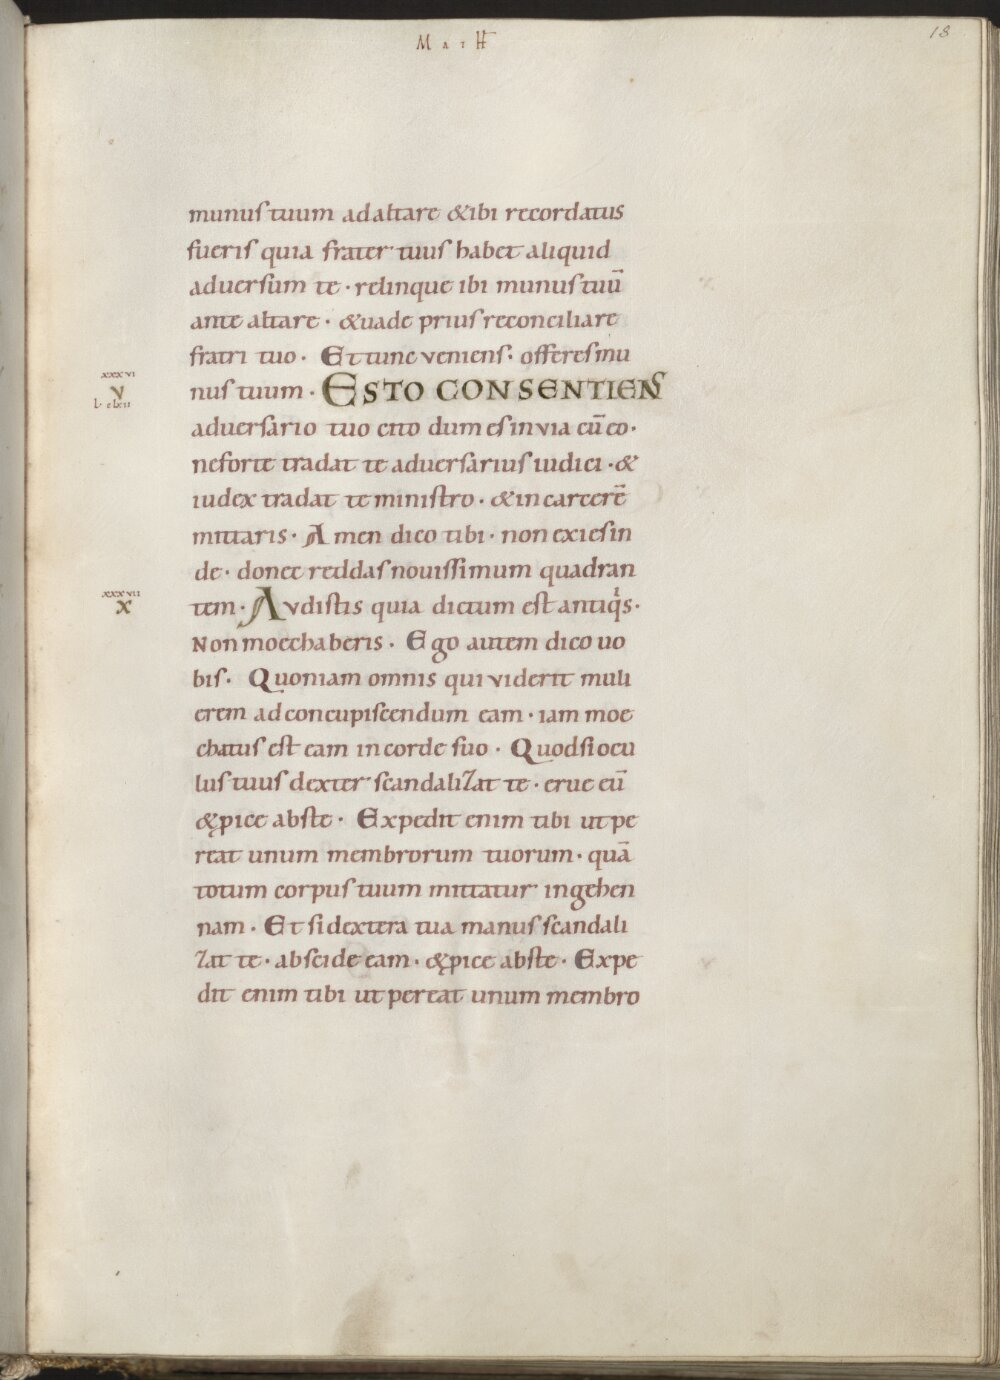 MATH
18
munus tuum ad altare & ibi recordatus
fueris quia frater tuus habet aliquid
adversum te · relinque ibi munus tuū
ante altare · & uade prius reconciliare
fratri tuo · Et tunc veniens · offeres mu
xxxvi
nus tuum · ESTO CONSENTIENS
v
adversario tuo cito dum es in via cū eo ·
ne forte tradat te adversarius iudici · &
iudex tradat te ministro · & in carcerē
mittaris · Amen dico tibi · non exies in
de · donec reddas novissimum quadran
xxxvii
tem · Avdistis quia dictum est antiqͥs ·
x
Non moechaberis · Ego autem dico uo
bis · Quoniam omnis qui viderit muli
erem ad concupiscendum eam · iam moe
chatus est eam in corde suo · Quod si ocu
lus tuus dexter scandalizat te · erue eū
& ꝓice abs te · Expedit enim tibi ut pe
reat unum membrorum tuorum · quā
totum corpus tuum mittatur in gehen
nam · Et si dextera tua manus scandali
zat te · abscide eam · & ꝓice abs te · Expe
dit enim tibi ut pereat unum membro